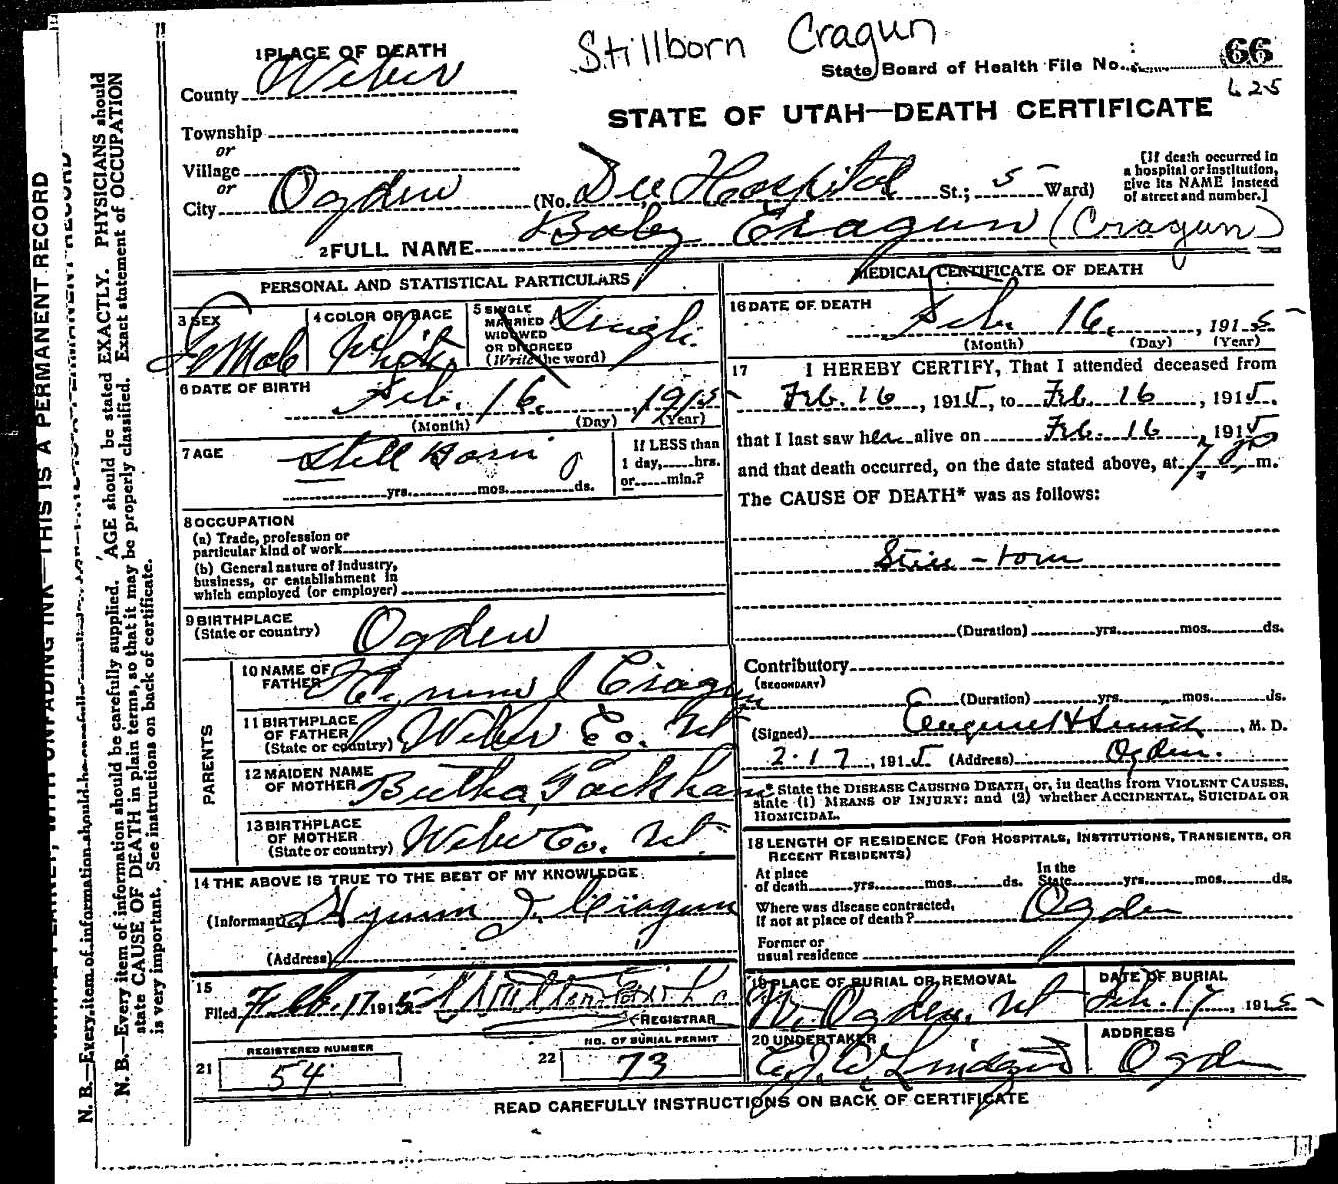 Stillborn Cragun
66
State Board of Health File No.
625
STATE OF UTAH—DEATH CERTIFICATE
1 PLACE OF DEATH
County Weber
Township
or
Village
or
City Ogden (No. Dee Hospital St.; 5 Ward)
[If death occurred in
a hospital or institution,
give its NAME instead
of street and number.]
2 FULL NAME Baby Cragun (Cragun)
PERSONAL AND STATISTICAL PARTICULARS
3 SEX FeMale
4 COLOR OR RACE White
5 SINGLE
MARRIED
WIDOWED
OR DIVORCED
(Write the word) Single
6 DATE OF BIRTH Feb. 16, 1915
(Month) (Day) (Year)
7 AGE Still Born 0
yrs. mos. ds.
If LESS than
1 day, hrs.
or min.?
8 OCCUPATION
(a) Trade, profession or
particular kind of work
(b) General nature of industry,
business, or establishment in
which employed (or employer)
9 BIRTHPLACE
(State or country) Ogden
PARENTS
10 NAME OF
FATHER Hyrum J Cragun
11 BIRTHPLACE
OF FATHER
(State or country) Weber Co. Ut
12 MAIDEN NAME
OF MOTHER Bertha Packham
13 BIRTHPLACE
OF MOTHER
(State or country) Weber Co. Ut.
14 THE ABOVE IS TRUE TO THE BEST OF MY KNOWLEDGE
(Informant) Hyrum J. Cragun
(Address)
15
Filed Feb. 17 1915
REGISTRAR
21 REGISTERED NUMBER
54
22 NO. OF BURIAL PERMIT
73
MEDICAL CERTIFICATE OF DEATH
16 DATE OF DEATH
Feb. 16, 1915
(Month) (Day) (Year)
17 I HEREBY CERTIFY, That I attended deceased from
Feb. 16, 1915, to Feb 16, 1915.
that I last saw her alive on Feb. 16 1915
and that death occurred, on the date stated above, at 7 P m.
The CAUSE OF DEATH* was as follows:
Still-born
(Duration) yrs. mos. ds.
Contributory
(SECONDARY)
(Duration) yrs. mos. ds.
(Signed) Eugene H Smith, M. D.
2-17, 1915 (Address) Ogden.
* State the DISEASE CAUSING DEATH, or, in deaths from VIOLENT CAUSES,
state (1) MEANS OF INJURY; and (2) whether ACCIDENTAL, SUICIDAL OR
HOMICIDAL.
18 LENGTH OF RESIDENCE (FOR HOSPITALS, INSTITUTIONS, TRANSIENTS, OR
RECENT RESIDENTS)
At place
of death yrs. mos. ds. In the
State yrs. mos. ds.
Where was disease contracted,
if not at place of death? Ogden
Former or
usual residence
19 PLACE OF BURIAL OR REMOVAL
W. Ogden, Ut
DATE OF BURIAL
Feb. 17, 1915
20 UNDERTAKER
ADDRESS
Ogden
READ CAREFULLY INSTRUCTIONS ON BACK OF CERTIFICATE
N. B.—Every item of information should be carefully supplied. AGE should be stated EXACTLY. PHYSICIANS should
state CAUSE OF DEATH in plain terms, so that it may be properly classified. Exact statement of OCCUPATION
is very important. See instructions on back of certificate.
UNFADING INK—THIS IS A PERMANENT RECORD